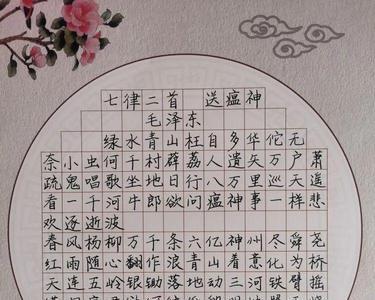 七律二首 送瘟神
毛泽东
绿水青山枉自多华佗无
奈小虫何千村薜荔人遗矢万户萧
疏鬼唱歌坐地日行八万里巡天遥
看一千河牛郎欲问瘟神事一样悲
欢逐逝波
春风杨柳万千条六亿神州尽舜尧
红雨随心翻作浪青山着意化为桥
天连五岭银锄落地动三河铁臂摇